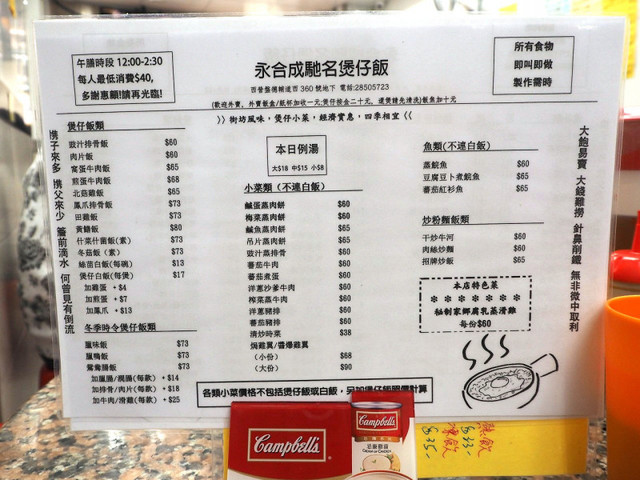 午膳時段 12:00-2:30
每人最低消費$40,
多謝惠顧!請再光臨!
永合成馳名煲仔飯
西營盤德輔道西 360 號地下 電話:28505723
(歡迎外賣、外賣飯盒/紙杯加收一元;煲仔按金二十元, 還煲請先清洗)飯焦加十元
所有食物
即叫即做
製作需時
〉〉街坊風味, 煲仔小菜, 經濟實惠, 四季相宜〈〈
攜子來多 攜父來少 簷前滴水 何曾見有倒流
煲仔飯類
豉汁排骨飯 $60
肉片飯 $60
窩蛋牛肉飯 $65
煎蛋牛肉飯 $68
北菇雞飯 $65
鳳爪排骨飯 $73
田雞飯 $73
黃鱔飯 $80
什菜什菌飯(素) $73
冬菇飯(素) $73
絲苗白飯(每碗) $13
煲仔白飯(每煲) $17
加雞蛋 + $4
加煎蛋 + $7
加鳳爪 + $13
冬季時令煲仔飯類
臘味飯 $73
臘鴨飯 $73
鴛鴦腸飯 $73
加臘腸/潤腸(每款) + $14
加排骨/肉片(每款) + $18
加牛肉/滑雞(每款) + $25
本日例湯
大$18 中$15 小$8
小菜類 (不連白飯)
鹹蛋蒸肉餅 $60
梅菜蒸肉餅 $60
鹹魚蒸肉餅 $65
吊片蒸肉餅 $65
豉汁蒸排骨 $60
蕃茄牛肉 $60
蕃茄煮蛋 $60
洋蔥沙爹牛肉 $60
榨菜蒸牛肉 $60
洋蔥豬排 $60
蕃茄豬排 $60
清炒時菜 $38
焗雞翼/醬爆雞翼
(小份) $68
(大份) $90
魚類(不連白飯)
蒸鯇魚 $60
豆腐豆卜煮鯇魚 $65
蕃茄紅衫魚 $65
炒粉麵飯類
干炒牛河 $60
肉絲炒麵 $60
招牌炒飯 $65
本店特色菜
秘制家鄉腐乳蒸滑雞
每份$60
大飽易賣 大錢難撈 針鼻削鐵 無非微中取利
各類小菜價格不包括煲仔飯或白飯,
Campbell's
Campbell's
CREAM OF CHICKEN